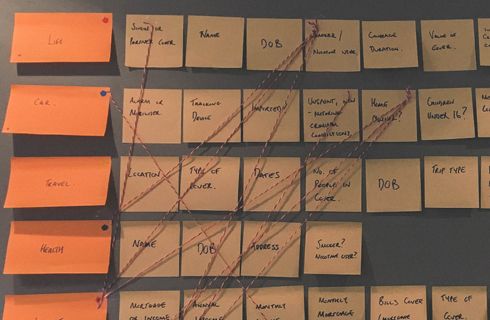 LIFE
SINGLE OR
PARTNER COVER.
NAME
DOB
SMOKER/
NICOTINE USER.
COVERAGE
DURATION.
VALUE OF
COVER.
CAR
ALARM OR
IMMOBILISER
TRACKING
DEVICE
IMPORTED?
UNSPENT, NON
MOTORING
CRIMINAL
CONVICTIONS
HOME
OWNER?
CHILDREN
UNDER 16?
TRAVEL
LOCATION
TYPE OF
COVER.
DATES
NO. OF
PEOPLE IN
COVER.
DOB
TRIP TYPE
HEALTH
NAME
DOB
ADDRESS
SMOKER?
NICOTINE USER?
MORTGAGE
OR INCOME.
ANNUAL
INCOME
MONTHLY
MONTHLY
MORTGAGE
BILLS COVER
TYPE OF
COVER.